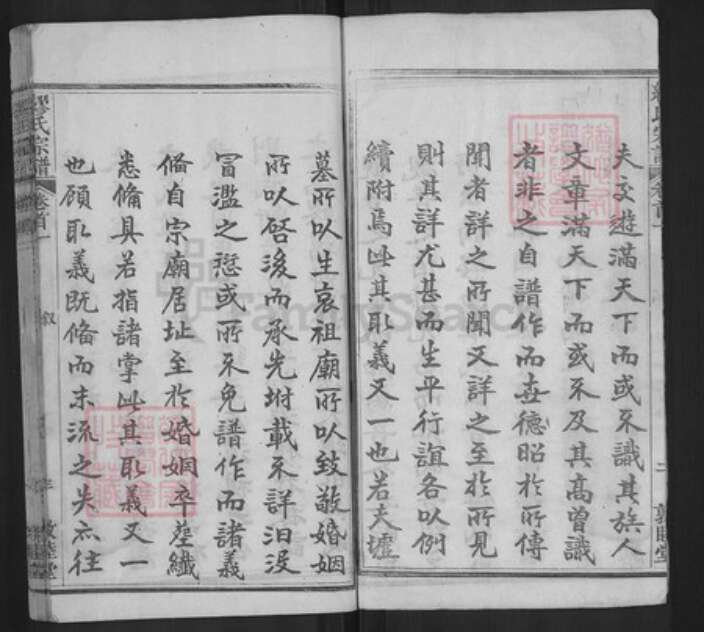 夫交遊滿天下而或不識其族人
文章滿天下而或不及其高曾識
者非之自譜作而世德昭於所傳
聞者詳之所聞又詳之至於所見
則其詳尤甚而生平行誼各以例
續附焉此其取義又一也若夫墟
墓所以生哀祖廟所以致敬婚姻
所以啓後而承先坿載不詳汩没
冒濫之愆或所不免譜作而諸義
俻自宗廟居址至於婚姻卒塟纖
悉俻具若指諸掌此其取義又一
也顧取義既俻而末流之失亦往
繆氏宗譜
卷首一
敘
敦睦堂
FamilySearch